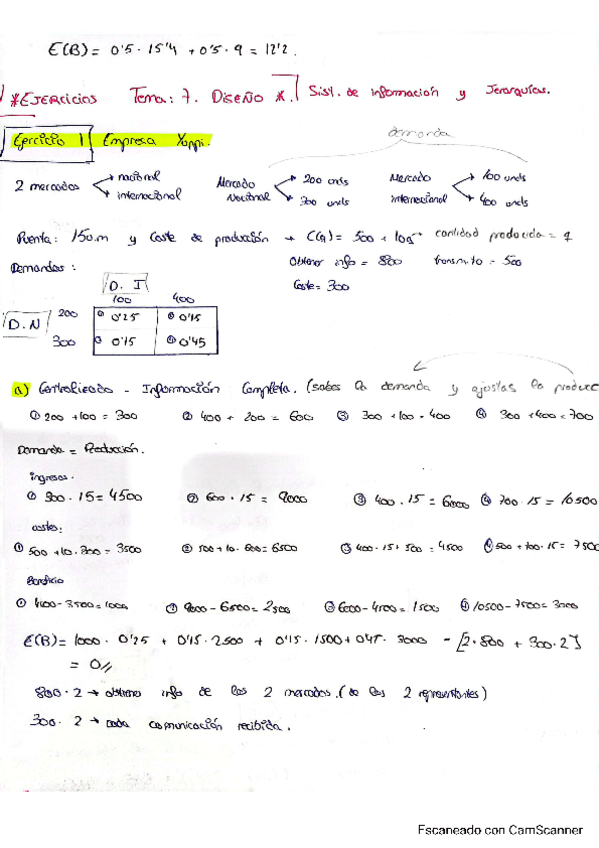 E(B) = 0'5 · 15'4 + 0'5 · 9 = 12'2.
*EJERCICIOS Tema: 7. DISEÑO *. Sist. de información y Jerarquías.
Ejercicio 1 Empresa Yoppi.
demanda
2 mercados nacional internacional
Mercado Nacional 200 unds 300 unds
Mercado internacional 100 unds 400 unds
Pventa: 150.m y Coste de producción → C(q) = 500 + 10q → cantidad producida = q
Obtener info = 800 transmito = 500
Demandas: Coste = 300
D. I
100 400
D.N 200 ① 0'25 ② 0'15
300 ③ 0'15 ④ 0'45
a) Centralizado - Información Completa. (sabes la demanda y ajustas la produce
① 200 + 100 = 300 ② 400 + 200 = 600 ③ 300 + 100 = 400 ④ 300 + 400 = 700
Demanda = Producción.
ingresos.
① 300 · 15 = 4500 ② 600 · 15 = 9000 ③ 400 · 15 = 6000 ④ 700 · 15 = 10500
costes:
① 500 + 10 · 300 = 3500 ② 500 + 10 · 600 = 6500 ③ 400 · 15 + 500 = 4500 ④ 500 + 700 · 15 = 7500
Beneficio
① 4500 - 3500 = 1000 ② 9000 - 6500 = 2500 ③ 6000 - 4500 = 1500 ④ 10500 - 7500 = 3000
E(B) = 1000 · 0'25 + 0'15 · 2500 + 0'15 · 1500 + 0'45 · 3000 - [2 · 800 + 300 · 2]
= 0//
800 · 2 → obtienes info de los 2 mercados. (de los 2 representantes)
300 · 2 → cada comunicación recibida.
Escaneado con CamScanner